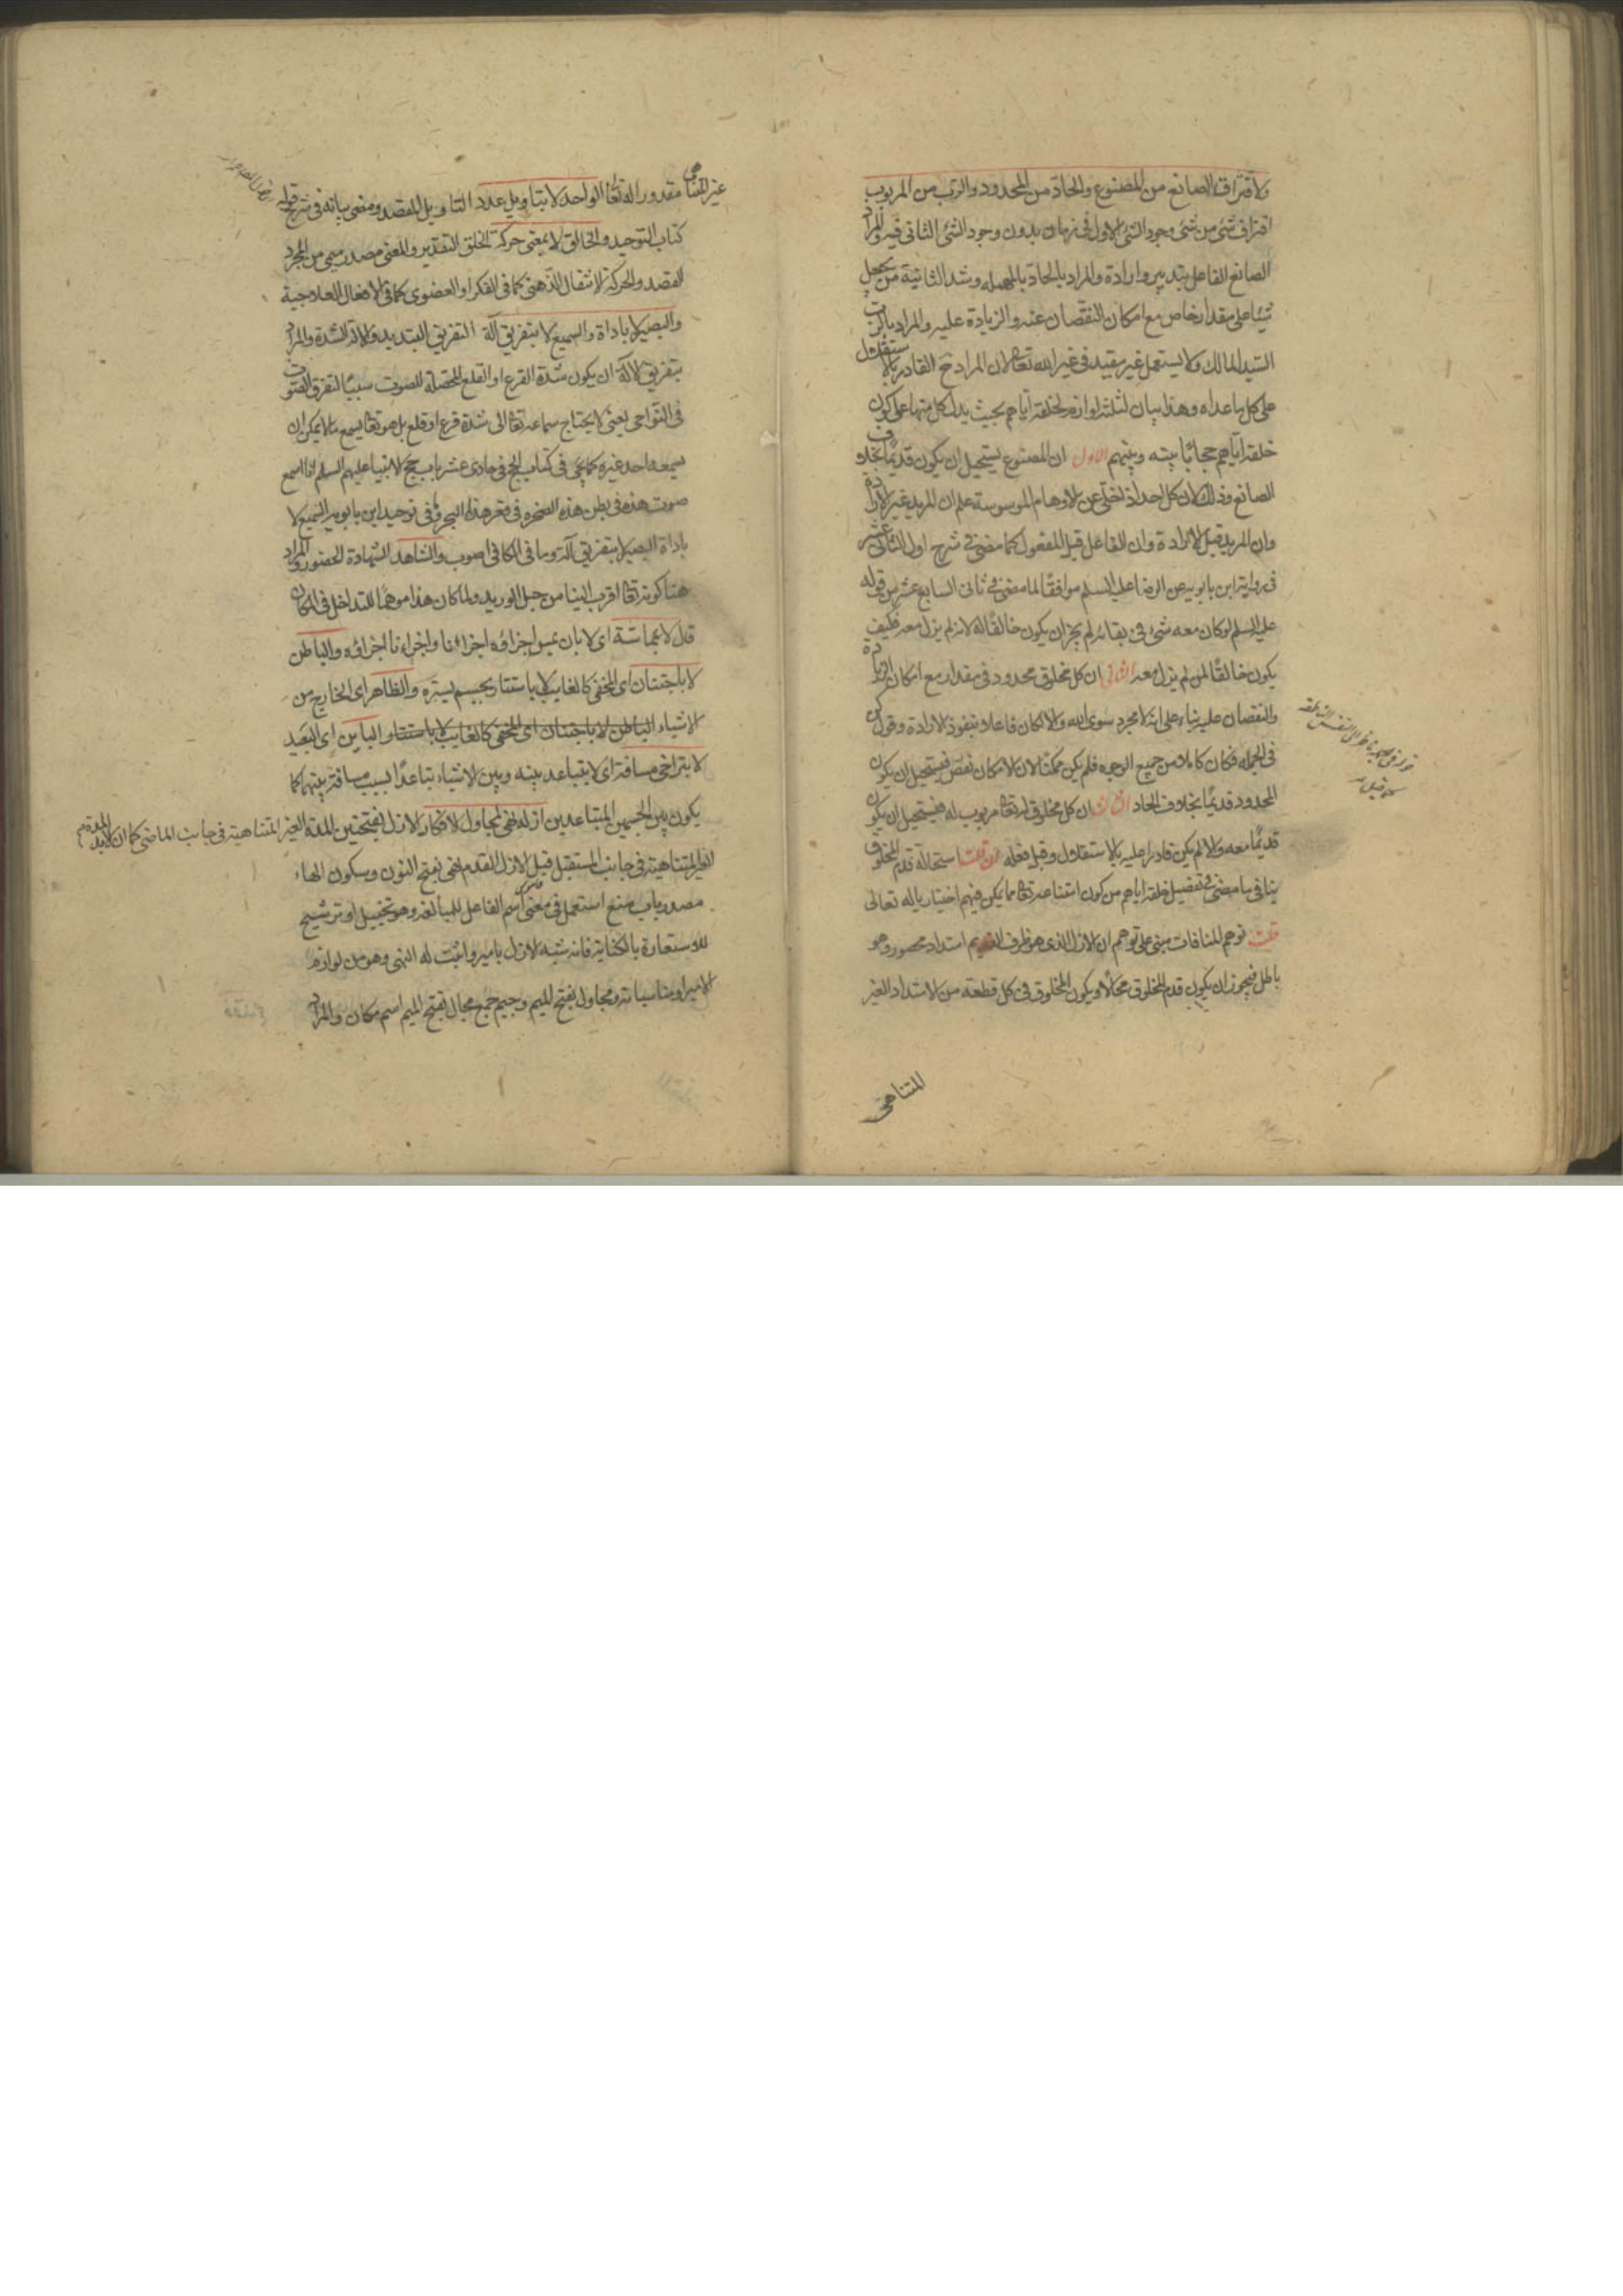 ولافتراق الصانع من المصنوع والحادّ من المحدود والربّ من المربوب
افتراق شئ من شئ وجود الشئ الاول فى زمان بدون وجود الشئ الثانى فيه والمراد
الصانع الفاعل بتدبير وارادة والمراد بالحادّ بالمهملة وشد الثانية من يجعل
شيئا على مقدار خاص مع امكان النقصان عنه والزيادة عليه والمراد بالرب
السيد المالك ولا يستعمل غير مقيد فى غير الله تعالى لان المراد ح القادر بالاستقلال
على كل ما عداه وهذا بيان لثلثة لوازم لخلقه اياهم بحيث يدل كل منها على كون
خلقه اياهم حجابًا بينه وبينهم الاول ان المصنوع يستحيل ان يكون قديمًا بخلاف
الصانع وذلك لان كل احد اذ تخلى عن الاوهام الموسوسة علم ان المريد غير الارادة
وان المريد قبل الارادة وان الفاعل قبل المفعول كما مضى فى شرح اول الثانى عشر
فى رواية ابن بابويه عن الرضا عليه السلم موافقًا لما مضى فى ثانى السابع عشر من قوله
عليه السلم لو كان معه شئ فى بقائه لم يجز ان يكون خالقًا له لانه لم يزل معه فكيف
يكون خالقًا لمن لم يزل معه الثانى ان كل مخلوق محدود فى مقدار مع امكان الزيادة
والنقصان عليه بناء على انه لا مجرد سوى الله والا لكان فاعلا بنفوذ الارادة وقول كن
فى الجملة فكان كاملا من جميع الوجوه فلم يكن ممكنا لان الامكان نقص فيستحيل ان يكون
المحدود قديمًا بخلاف الحاد الثالث ان كل مخلوق له تعالى مربوب له فيستحيل ان يكون
قديمًا معه والا لم يكن قادرا عليه بالاستقلال وقبل فعله ان قلت استحالة قدم المخلوق
ينافى ما مضى فى تفصيل خلقه اياهم من كون امتناعه تعالى مما يمكن فيهم اختياريا له تعالى
قلت توهم المنافات مبنى على توهم ان الازل الذى هو ظرف القديم امتداد محصور وهو
باطل فيجوز ان يكون قدم المخلوق محالًا ويكون المخلوق فى كل قطعة من الامتداد الغير
المتناهى
غير المتناهى مقدورا له تعالى الواحد لا بتاويل عدد التاويل المقصد ومضى بيانه فى شرح قوله
كتاب التوحيد والخالق لا بمعنى حركة الخلق التقدير والمعنى مصدر ميمى من المجرد
المقصد والحركة الانتقال الذهنى كما فى الفكر او العضوى كما فى الافعال العلاجية
والبصير لا باداة والسميع لا بتفريق آلة التفريق التبديد والآلة الشدة والمراد
بتفريق الآلة ان يكون شدة القرع او القلع المحصلة للصوت سببًا لتفرق الصوت
فى النواحى يعنى لا يحتاج سماعه تعالى الى شدة قرع او قلع بل هو تعالى يسمع ما لا يمكن ان
يسمعه احد غيره كما يجئ فى كتاب الحج فى حادى عشر باب حج الانبياء عليهم السلم انا اسمع
صوت هذه فى بطن هذه الصخرة فى قعر هذا البحر وفى توحيد ابن بابويه السميع لا
باداة البصير لا بتفريق آلة وما فى الكافى اصوب والشاهد الشهادة الحضور والمراد
هنا كونه تعالى اقرب الينا من حبل الوريد ولما كان هذا موهمًا للتداخل فى المكان
قال لا بمماسّة اى لا بان يمس اجزاؤه اجزاءنا واجزاءنا اجزاؤه والباطن
لا باجتنان اى المخفى كالغايب لا باستتار بجسم يستره والظاهر اى الخارج من
الاشياء الباطن لا باجتنان اى المخفى كالغايب لا باستتار البائن اى البعيد
لا بتراخى مسافة اى لا بتباعد بينه وبين الاشياء تباعدًا بسبب مسافة بينهما كما
يكون بين الجسمين المتباعدين ازله نهى لمجاول الافكار الازل بفتحتين المدة الغير المتناهية فى جانب الماضى كما ان الابد المدة
الغير المتناهية فى جانب المستقبل قيل الازل القدم نهى بفتح النون وسكون الهاء
مصدر باب منع استعمل فى معنى اسم الفاعل للمبالغة وهو تخييل او ترشيح
للاستعارة بالكناية فانه شبه الازل بامير واثبت له النهى وهو من لوازم
الامير او مناسباته ومجاول بفتح الميم وجيم جمع مجال بفتح الميم اسم مكان والمراد